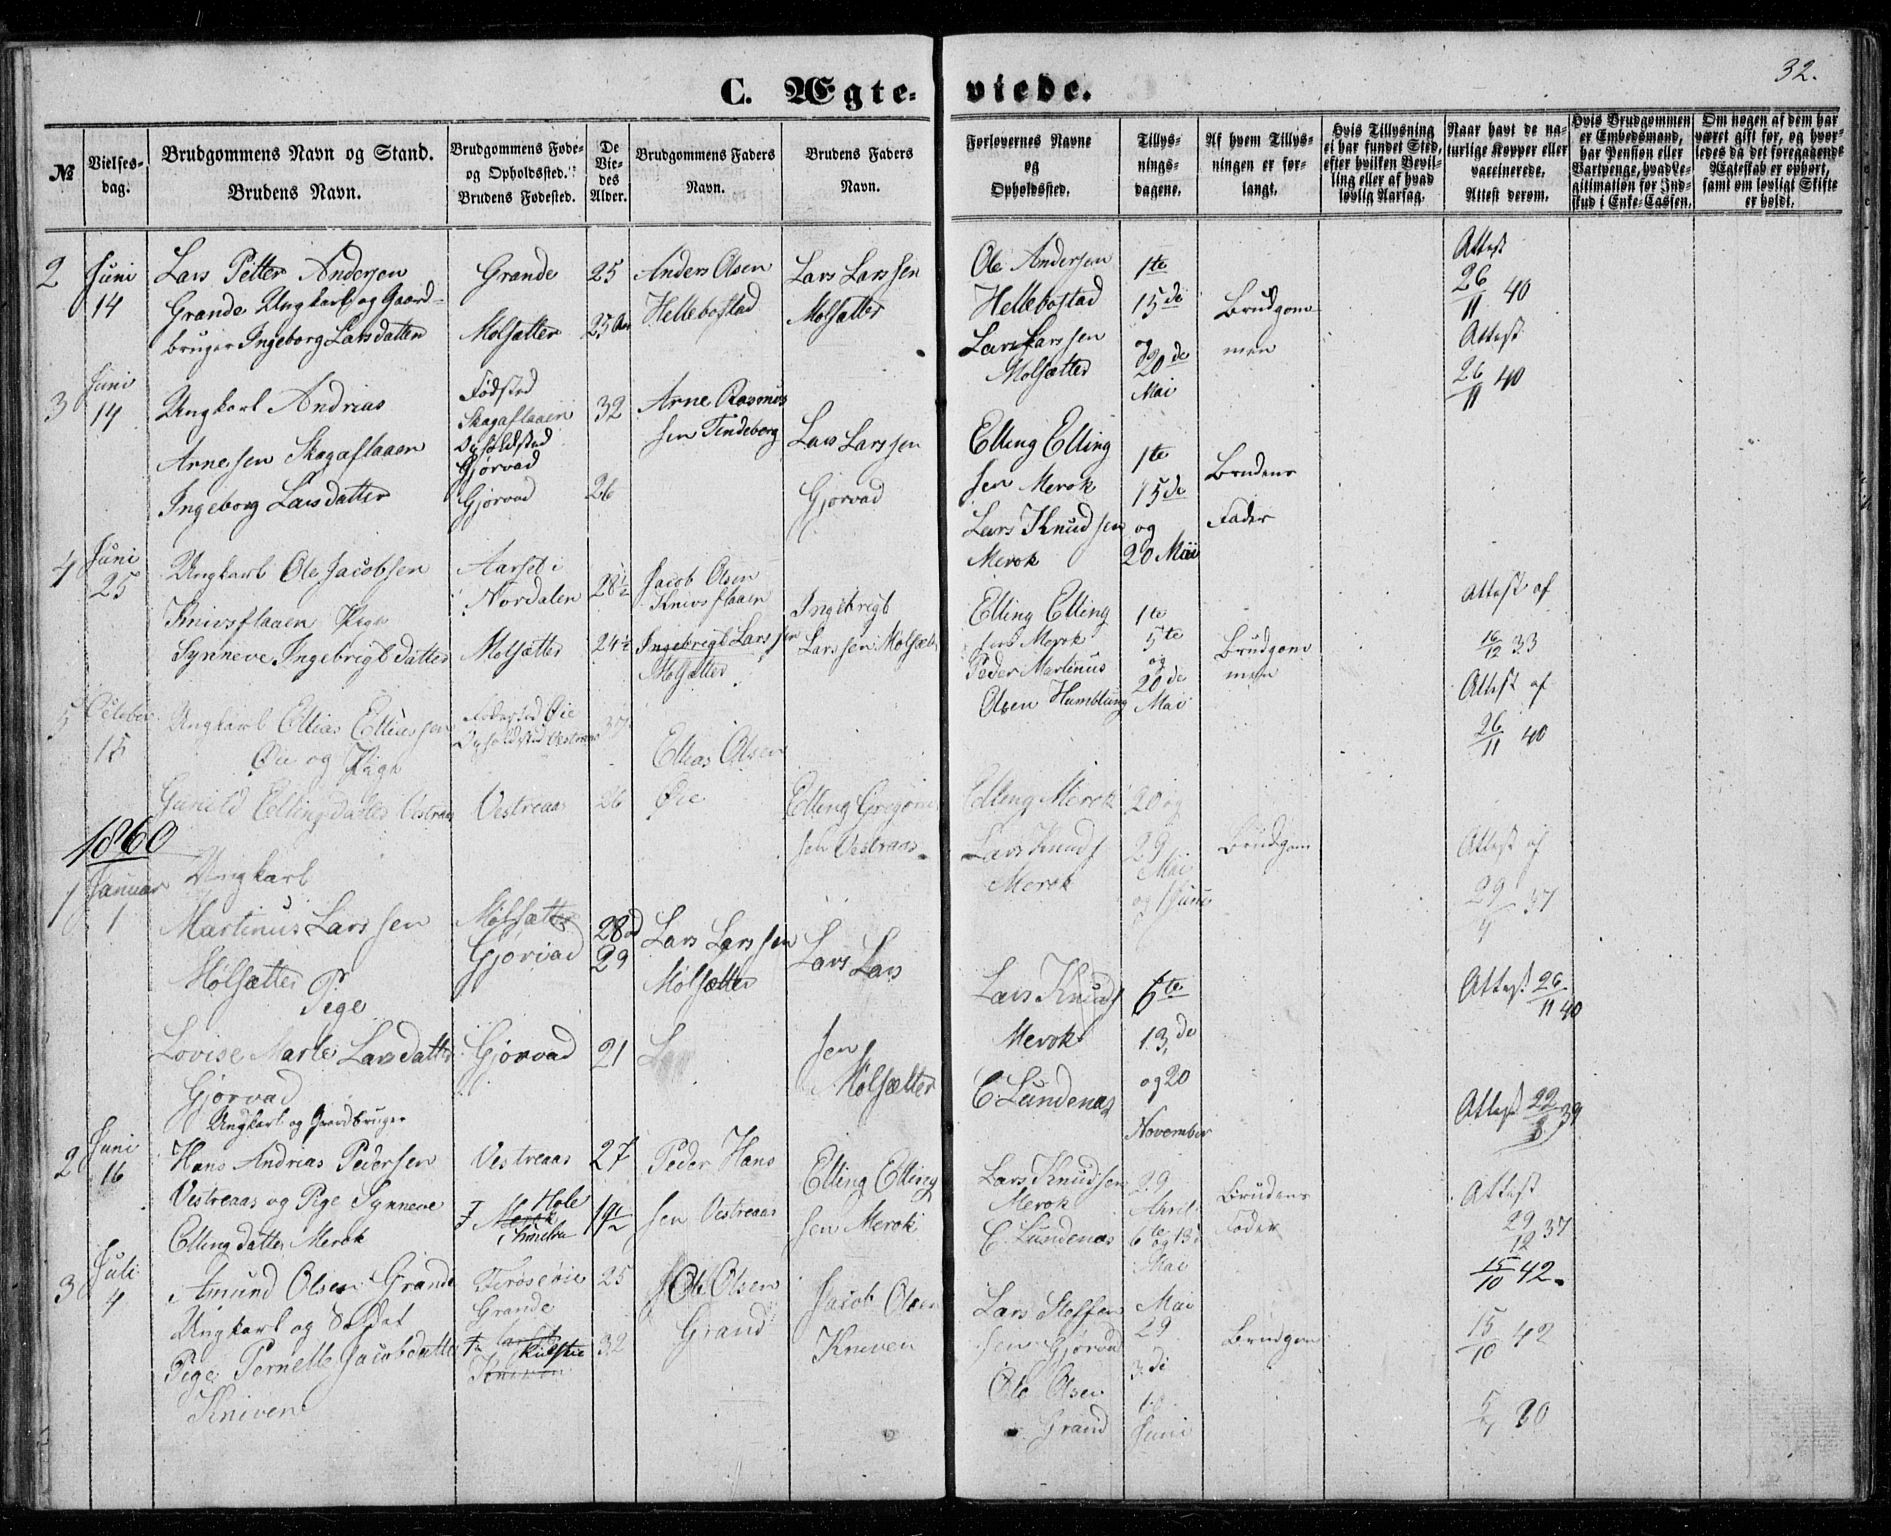 32.
C. Ægteviede.
№
Vielsesdag.
Brudgommens Navn og Stand.
Brudens Navn.
Brudgommens Føde- og Opholdssted.
Brudens Fødested.
De Viedes Alder.
Brudgommens Faders Navn.
Brudens Faders Navn.
Forlovernes Navne og Opholdssted.
Tillysningsdagene.
Af hvem Tillysningen er forlangt.
Hvis Tillysning ei har fundet Sted, efter hvilken Bevilling eller af hvad lovlig Aarsag.
Naar havt de naturlige Kopper eller vaccinerede. Attest derom.
Hvis Brudgommen er Embedsmand, har Pension eller Vartpenge, hvad Legitimation for Indskud i Enke-Cassen.
Om nogen af dem har været gift før, og hvorledes da det foregaaende Ægteskab er ophørt, samt om lovligt Skifte er holdt.
2
Juni 14
Lars Petter Andersen
Grande Ungkarl og Gaard-
bruger Ingeborg Larsdatter
Grande
Molsætter
25
25
Anders Olsen
Hellebostad
Lars Larssen
Molsætter
Ole Andersen
Hellebostad
Lars Larssen
Molsætter
1te
15de
og
20de
Mai
Brudgom
men
Attest
26/11 40
Attest
26/11 40
3
Juni 14
Ungkarl Andrias
Arnesen Skagaflaaen
Ingeborg Larsdatter
Fødsted
Skagaflaaen
Opholdsted
Gjørvad
Gjørvad
32
26
Arne Rasmus
sen Tindeborg
Lars Larssen
Gjørvad
Elling Elling
sen Merok
Lars Knudsen
Merok
1te
15de
og
20 Mai
Brudens
Fader
4
Juni 25
Ungkarl Ole Jacobsen
Knivsflaaen Pige
Synneve Ingebrigtdatter
Aarset i
Nordalen
Molsætter
28½
24½
Jacob Olsen
Knivsflaaen
Ingebrigt Larssen
Molsætter
Ingebrigt
Larssen Molsæt
Elling Elling
sen Merok
Peder Martinus
Olsen Humblung
1te
5te
og
20de
Mai
Brudgom
men
Attest af
16/12 33
Attest af
26/11 40
5
October 15
Ungkarl Ellias Elliassen
Øie og Pige
Gunild Ellingsdatter Vestraas
Fødested Øie
Opholdsted Vestraas
Vestreaas
37
26
Ellias Olsen
Øie
Elling Gregorius
sen Vestraas
Elling Merok
Lars Knuds
Merok
20 og
29
Mai
og 1 Juni
Brudgom
Attest af
29 37
1860
1
Januar 1
Ungkarl
Martinus Larssen
Molsætter
Pige
Lovise Marte Larsdatter
Gjørvad
Molsætter
Gjorvad
Gjorvad
28
29
21
Lars Larssen
Molsætter
Lars Lars
sen
Molsætter
Lars Knuds
Merok
E. Lundenæs
6te
13de
og 20
November
Attest 26/11 40
Attest 22 39
2
Juni 16
Ungkarl og Gaardbruger
Hans Andrias Pedersen
Vestreaas og Pige Synneve
Ellingdatter Merok
Vestreaas
Hole
Merok
27
19½
Peder Hans
sen Vestreaas
Elling Elling
sen Merok
Lars Knudsen
Merok
E. Lundenæs
29
April
6te og 13de
Mai
Brudens
Fader
Attest
29/12 37
15/10 42.
3
Juli 4
Amund Olsen Grande
Ungkarl og Soldat
Pige Pernelle Jacobdatter
Kniven
Grande
25
32
Ole Olsen
Grand
Jacob Olsen
Kniven
Lars Steffen
sen Gjørvad
Ole Olsen
Grand
Mai
29
3de
10
Juni
Brudgom
15/10 42